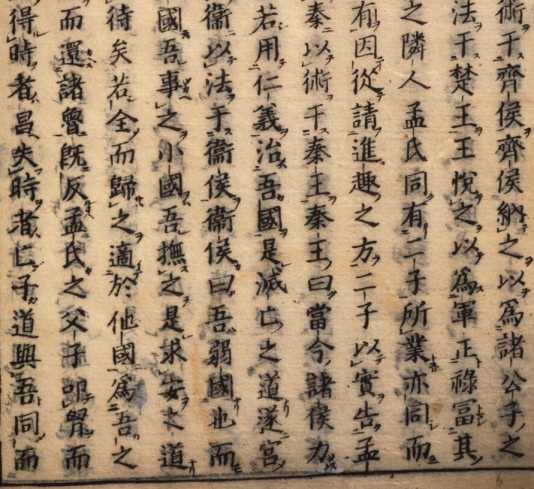 術干齊侯齊侯納之以爲諸公子之
法干楚王王悅之以爲軍正祿冨其
之隣人孟氏同有二子所業亦同而
有因從請進趣之方二子以實告孟
秦以術干秦王秦王曰當今諸侯力
若用仁義治吾國是滅亡之道遂宮
衞以法干衞侯衞侯曰吾弱國也而
國吾事之小國吾撫之是求安之道
待矣若全而歸之適於他國爲吾之
而還諸魯旣反孟氏之父子叩胷而
得時者昌失時者亡子道與吾同而